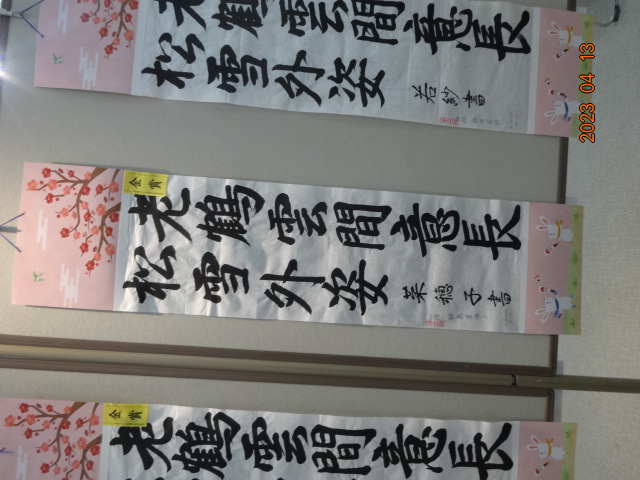 老鶴雲間意長
松雪外姿
若紗書
金賞
老鶴雲間意長
松雪外姿
菜穂子書
金賞
老鶴雲間意長
2023 04 13